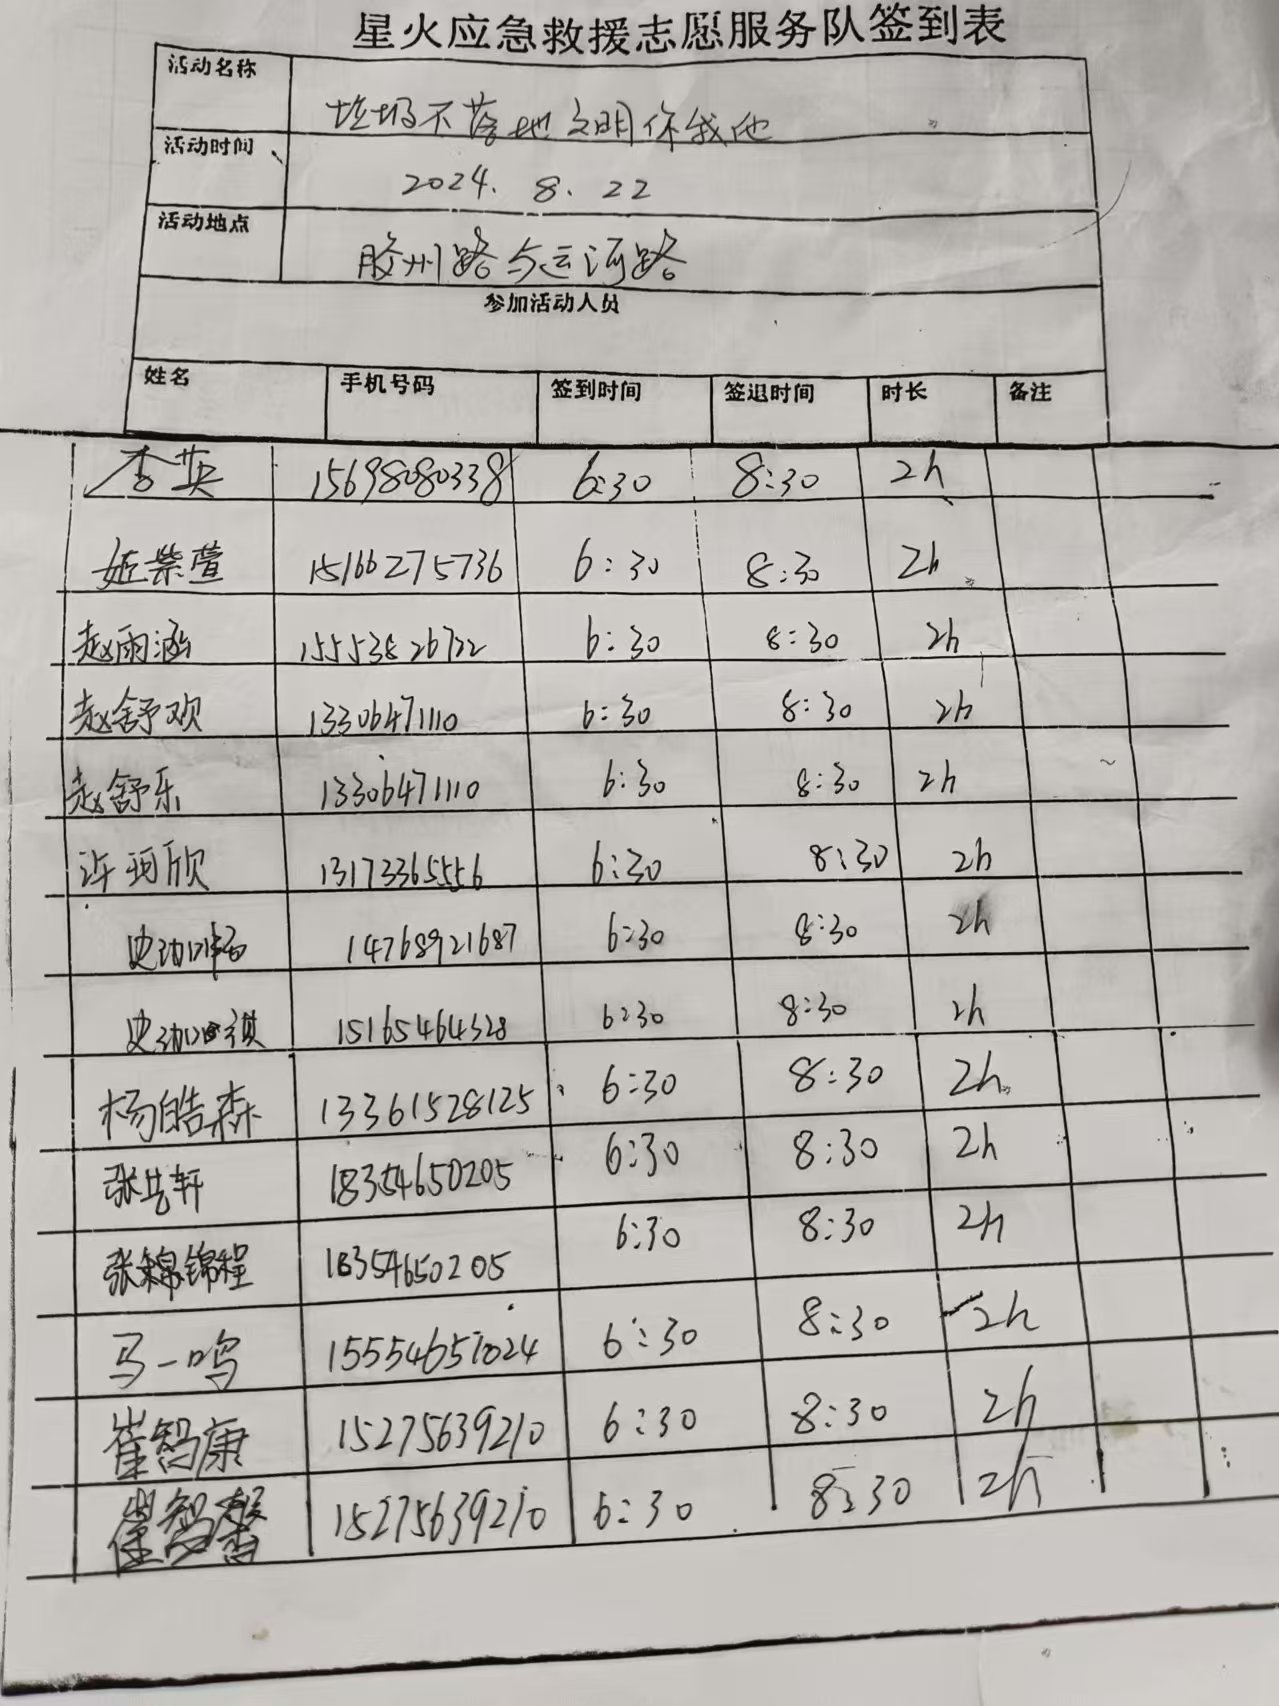 星火应急救援志愿服务队签到表
活动名称 垃圾不落地文明你我他
活动时间 2024. 8. 22
活动地点 胶州路与运河路
参加活动人员
姓名 手机号码 签到时间 签退时间 时长 备注
李英 15698080338 6:30 8:30 2h
姬紫萱 15166275736 6:30 8:30 2h
赵雨涵 15553826722 6:30 8:30 2h
赵舒欢 13306471110 6:30 8:30 2h
赵舒乐 13306471110 6:30 8:30 2h
许珂欣 13173365556 6:30 8:30 2h
14768921687 6:30 8:30 2h
15165464328 6:30 8:30 2h
杨皓森 13361528125 6:30 8:30 2h
张艺轩 18354650205 6:30 8:30 2h
张锦程 18354650205 6:30 8:30 2h
马一鸣 15554651024 6:30 8:30 2h
崔智康 15275639210 6:30 8:30 2h
崔智馨 15275639210 6:30 8:30 2h